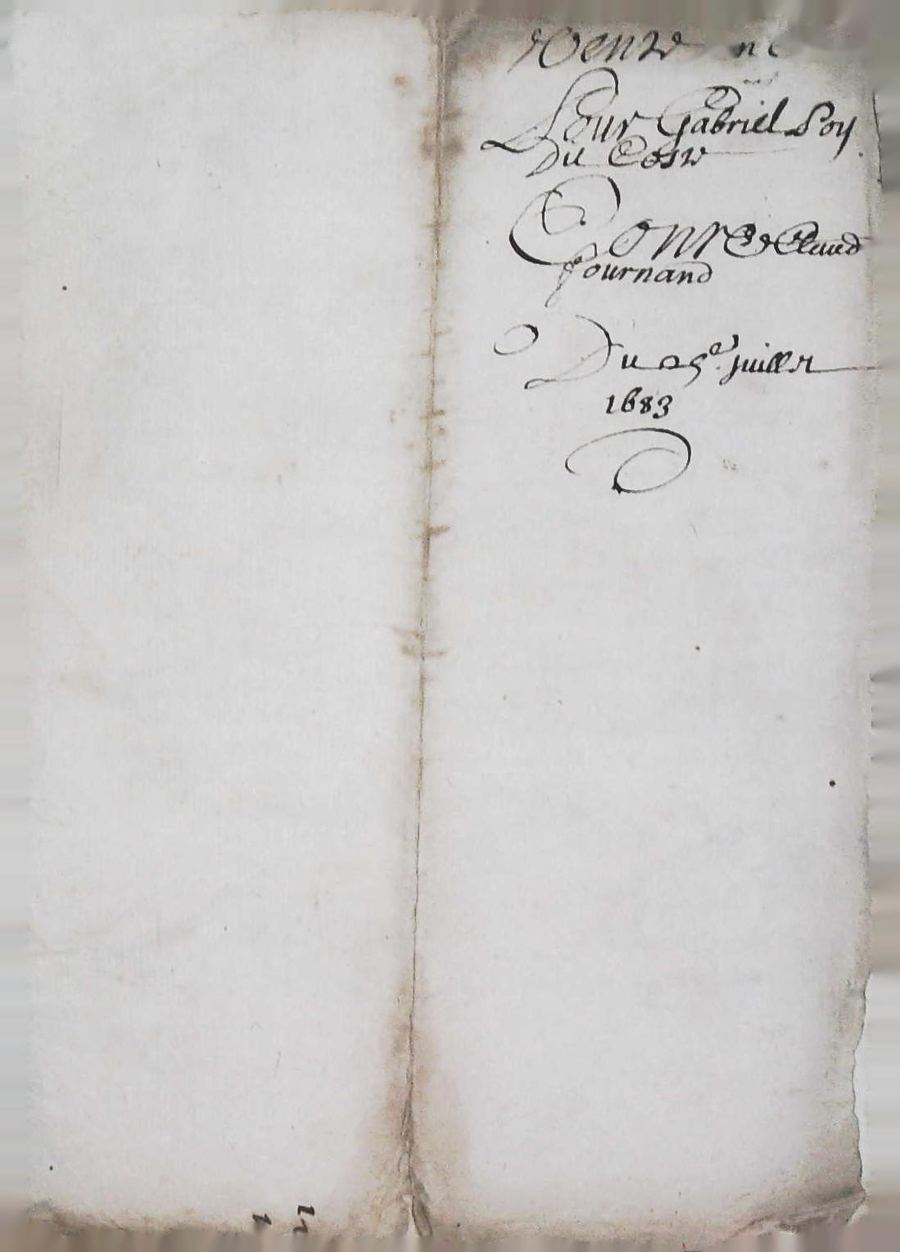 Vente
Pour Gabriel Poy
Du Coste
Contre Claud
fournand
Du 25e. juillet
1683